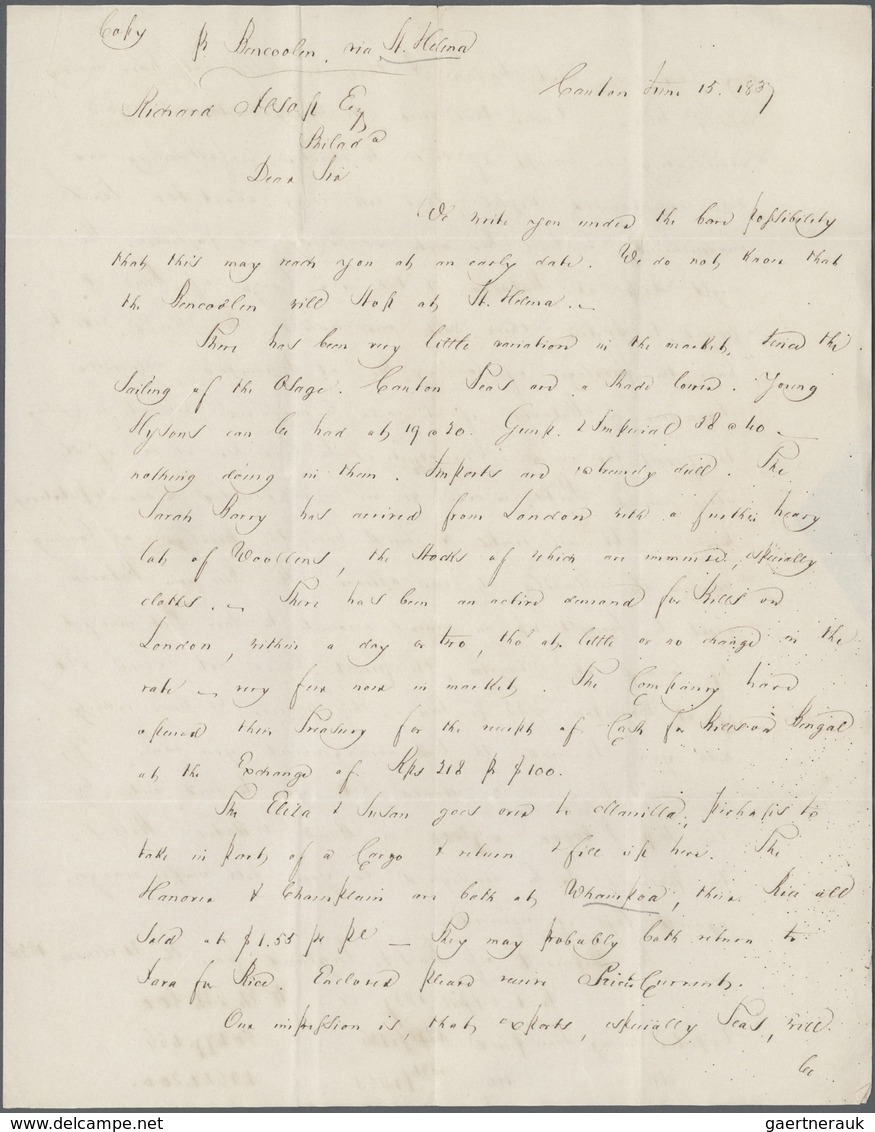 Copy
pr Bencoolen, via St. Helena
Canton June 15. 1837
Richard Alsop Esq
Philada
Dear Sir
We write you under the bare possibility
that this may reach you at an early date. We do not know that
the Bencoolen will stop at St. Helena.
There has been very little variation in the market, since the
sailing of the Osage. Canton Teas are a shade lower. Young
Hysons can be had at 19 a 20. Gunp. & Imperial 38 a 40
nothing doing in them. Imports are extremely dull. The
Sarah Barry has arrived from London with a further heavy
lot of Woollens, the stocks of which are immense, especially
cloths. There has been an active demand for Bills on
London, within a day or two, tho' at little or no change in the
rate very few now in market. The Company have
opened their Treasury for the receipt of Cash for Bills on Bengal
at the Exchange of Rps 218 pr $100.
The Eliza & Susan goes over to Manilla, perhaps to
take in part of a Cargo & return & fill up here. The
Hanover & Champlain are both at Whampoa, their Rice all
sold at $1.55 pr pl They may probably both return to
Java for Rice. Enclosed please receive Prices Current.
Our impression is, that exports, especially Teas, will
be
gaertnerauk